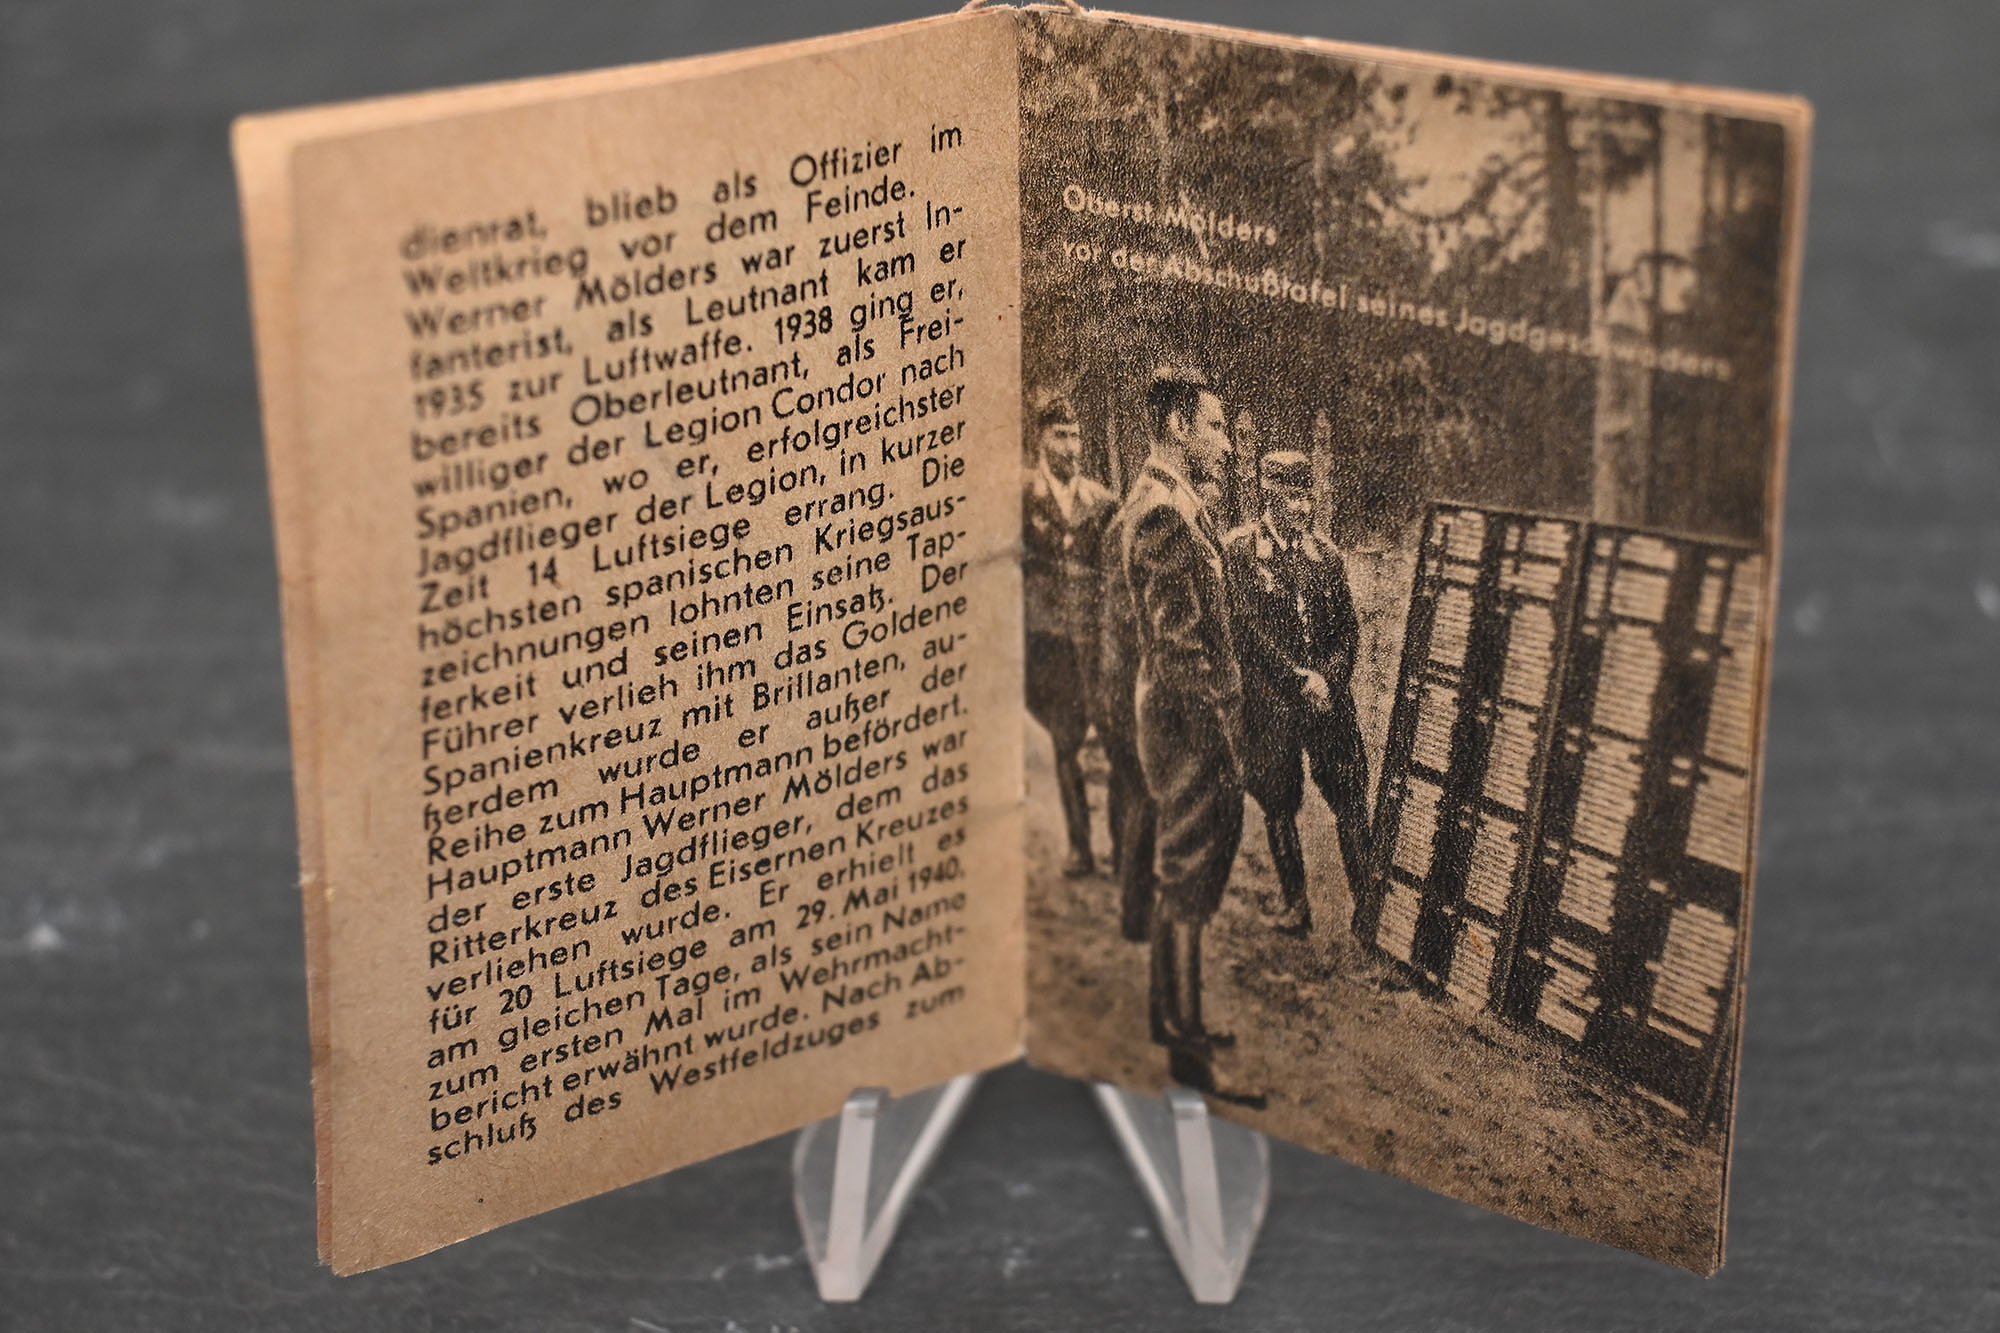 dienrat, blieb als Offizier im
Weltkrieg vor dem Feinde.
Werner Mölders war zuerst In-
fanterist, als Leutnant kam er
1935 zur Luftwaffe. 1938 ging er,
bereits Oberleutnant, als Frei-
williger der Legion Condor nach
Spanien, wo er, erfolgreichster
Jagdflieger der Legion, in kurzer
Zeit 14 Luftsiege errang. Die
höchsten spanischen Kriegsaus-
zeichnungen lohnten seine Tap-
ferkeit und seinen Einsatz. Der
Führer verlieh ihm das Goldene
Spanienkreuz mit Brillanten, au-
ßerdem wurde er außer der
Reihe zum Hauptmann befördert.
Hauptmann Werner Mölders war
der erste Jagdflieger, dem das
Ritterkreuz des Eisernen Kreuzes
verliehen wurde. Er erhielt es
für 20 Luftsiege am 29. Mai 1940,
am gleichen Tage, als sein Name
zum ersten Mal im Wehrmacht-
bericht erwähnt wurde. Nach Ab-
schluß des Westfeldzuges zum
Oberst Mölders
vor der Abschußtafel seines Jagdgeschwaders